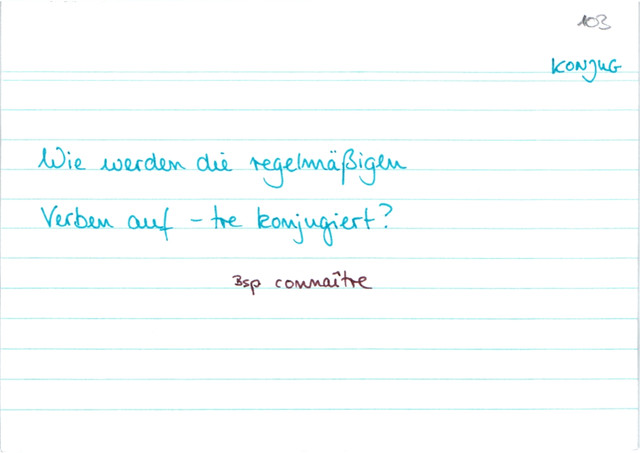 103
KONJUG
Wie werden die regelmäßigen
Verben auf -tre konjugiert?
Bsp connaître